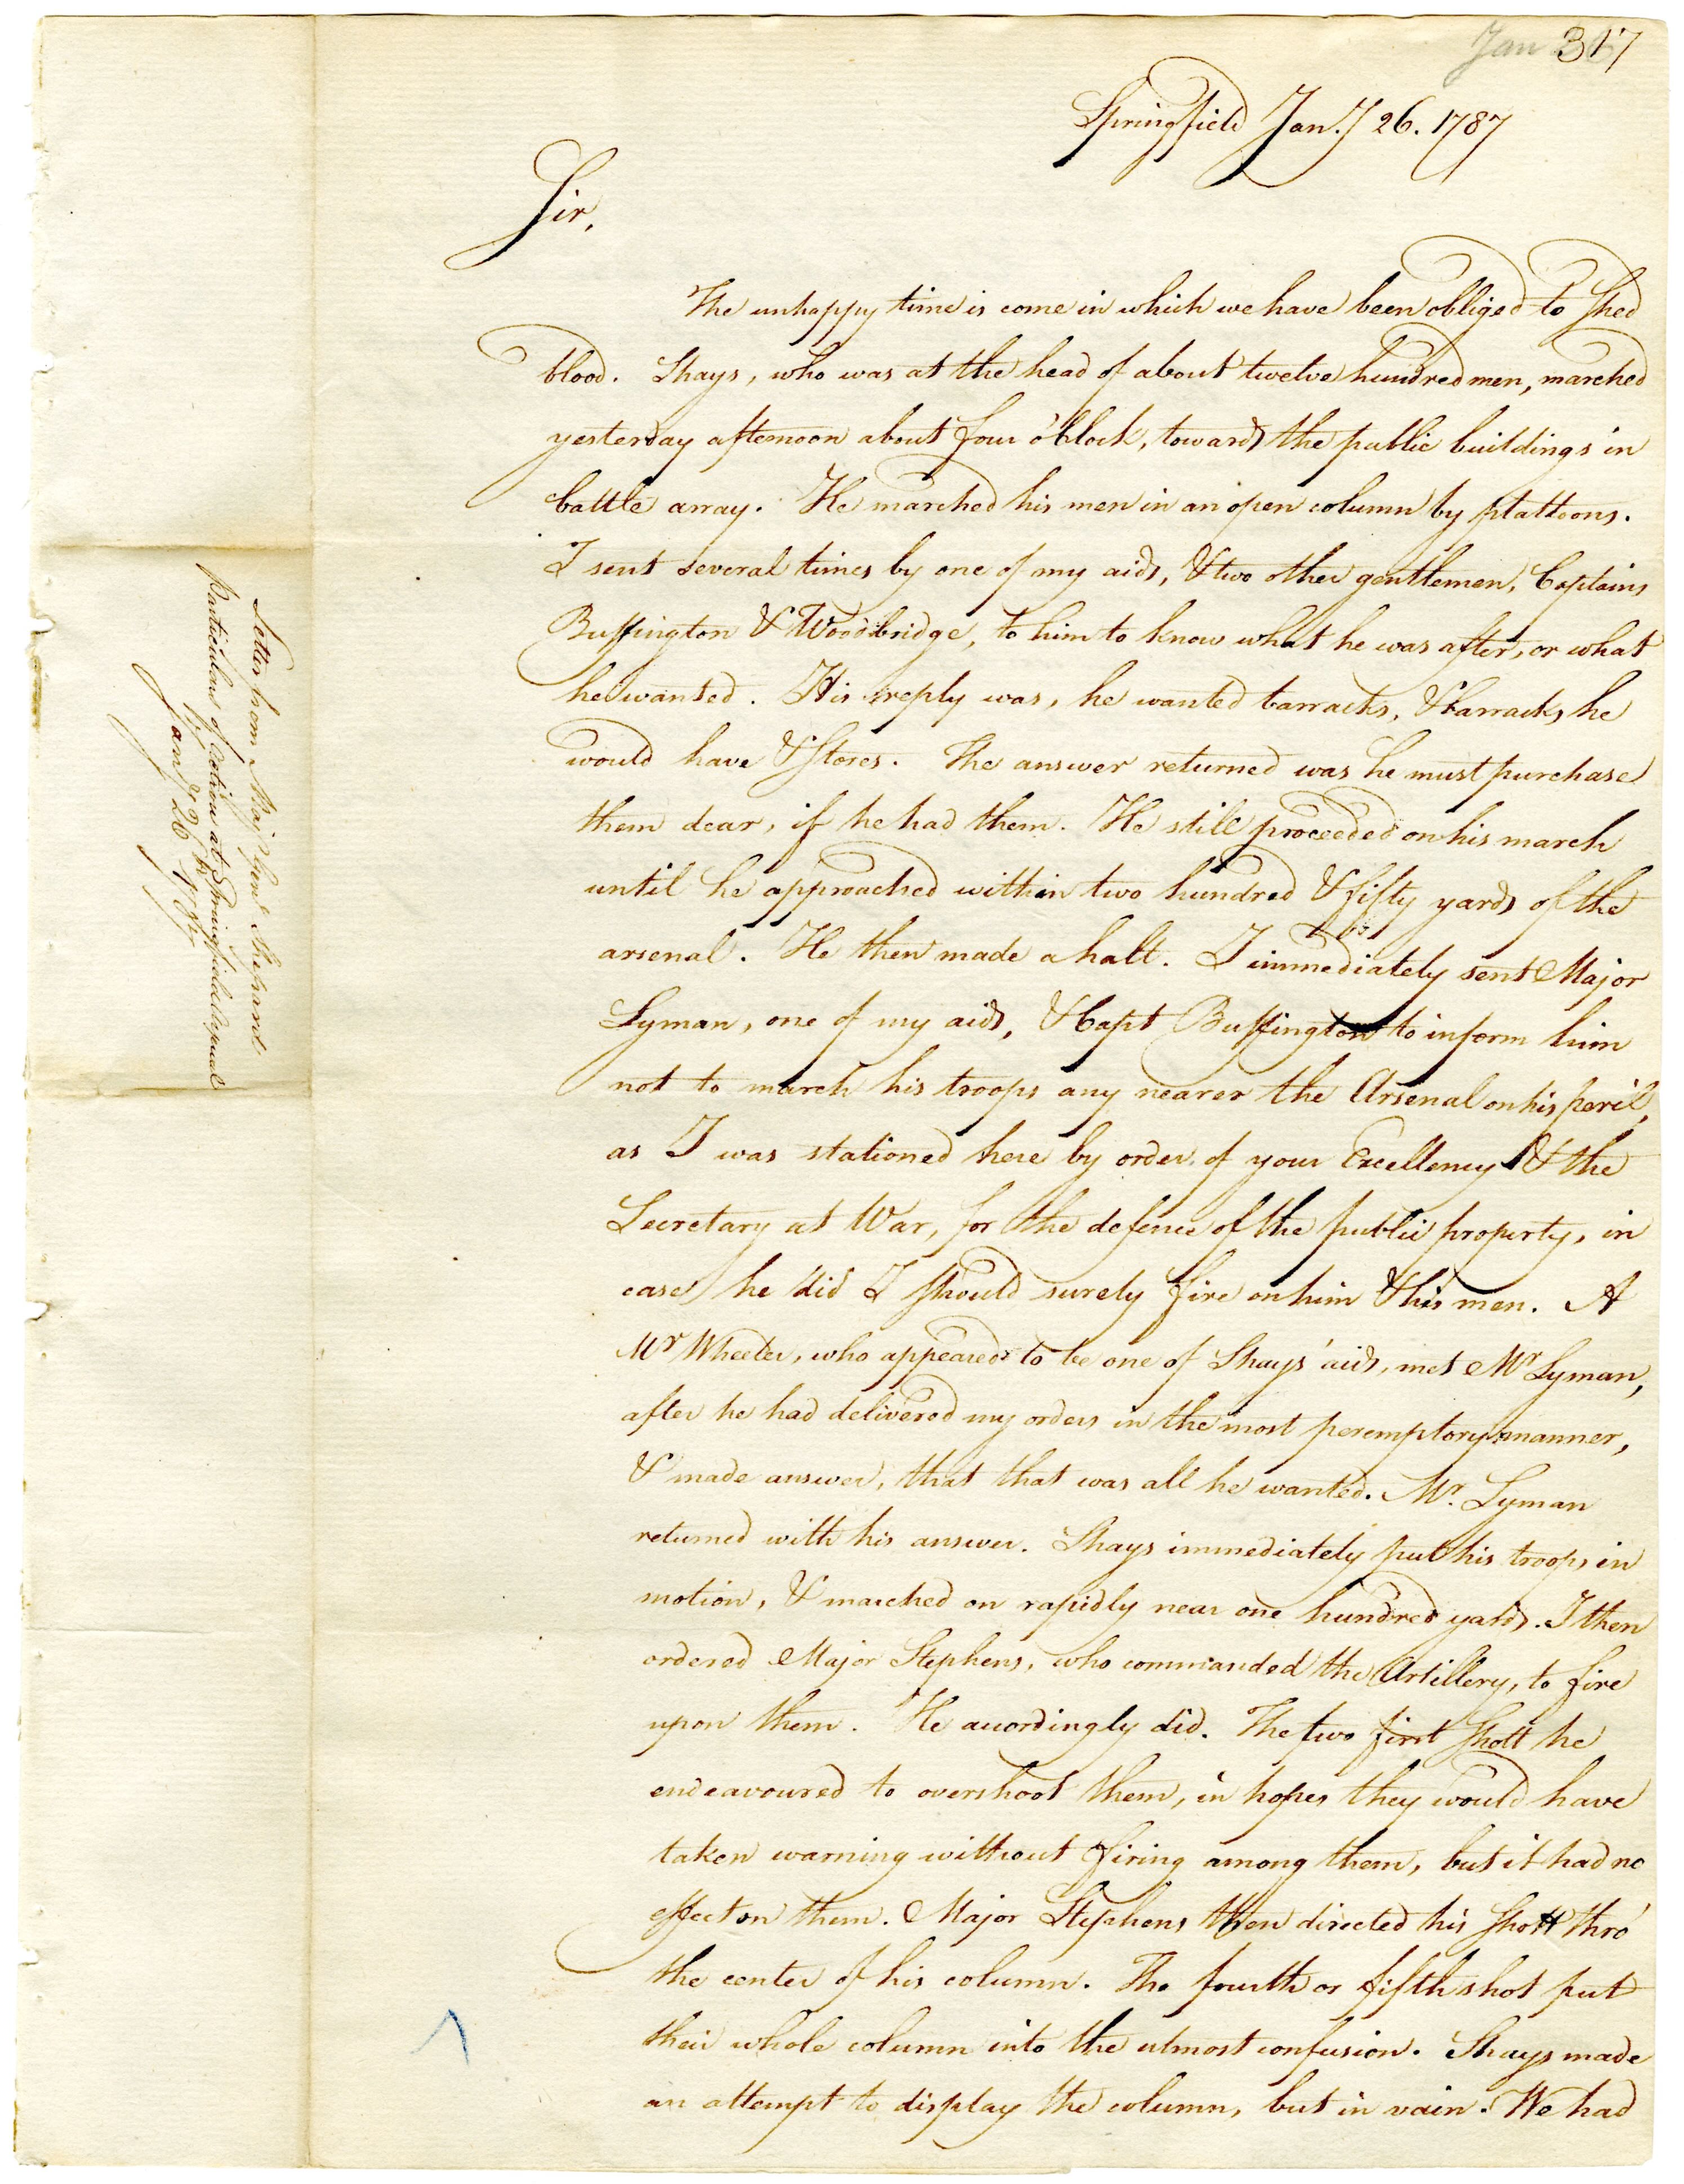 Jan 317
Springfield Jan.y 26. 1787
Sir,
The unhappy time is come in which we have been obliged to shed
blood. Shays, who was at the head of about twelve hundred men, marched
yesterday afternoon about four o'Clock, towards the public buildings in
battle array. He marched his men in an open column by plattoons.
I sent several times by one of my aids, & two other gentlemen, Captains
Buffington & Woodbridge, to him to know what he was after, or what
he wanted. His reply was, he wanted barracks, & barracks he
would have & stores. The answer returned was he must purchase
them dear, if he had them. He still proceeded on his march
until he approached within two hundred & fifty yards of the
arsenal. He then made a halt. I immediately sent Major
Lyman, one of my aids, & Capt Buffington to inform him
not to march his troops any nearer the Arsenal on his peril,
as I was stationed here by order of your Excellency & the
Secretary at War, for the defence of the public property, in
case he did I should surely fire on him & his men. A
Mr Wheeler, who appeared to be one of Shays' aids, met Mr Lyman,
after he had delivered my orders in the most peremptory manner,
& made answer, that that was all he wanted. Mr. Lyman
returned with his answer. Shays immediately put his troops in
motion, & marched on rapidly near one hundred yards. I then
ordered Major Stephens, who commanded the Artillery, to fire
upon them. He accordingly did. The two first shott he
endeavoured to overshoot them, in hopes they would have
taken warning without firing among them, but it had no
effect on them. Major Stephens then directed his shott thro'
the center of his column. The fourth or fifth shot put
their whole column into the utmost confusion. Shays made
an attempt to display the column, but in vain. We had
Letter from Maj Genl Shepard
Particulars of action at Springfield Arsenal
Jany 26th 1787